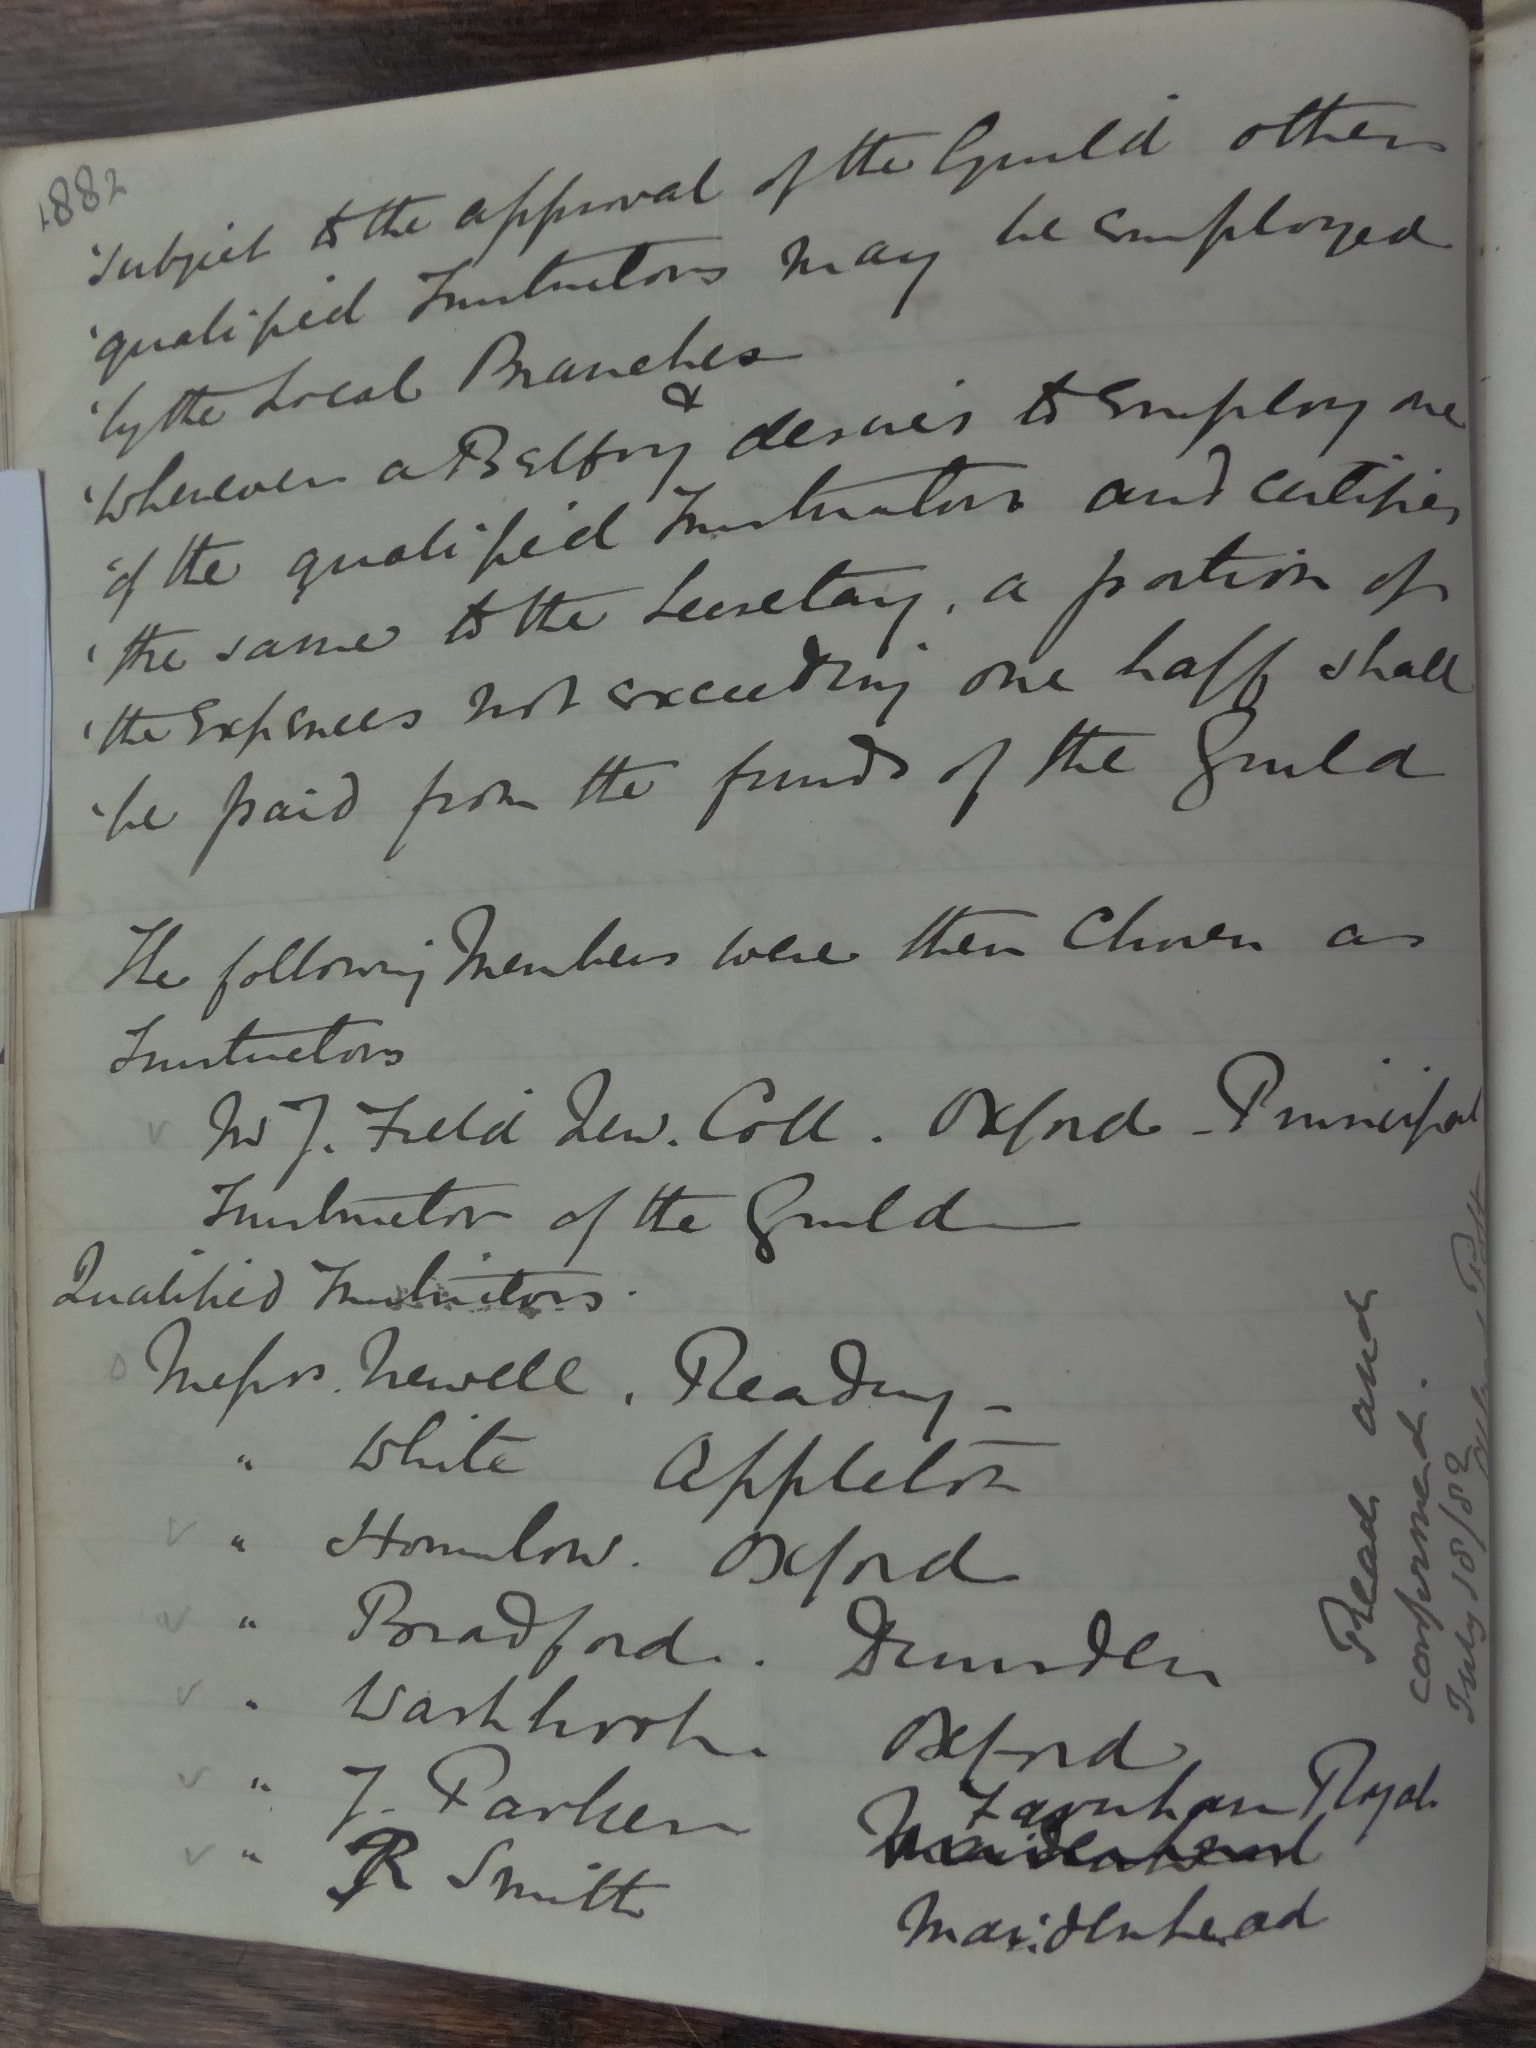 1882
'subject to the approval of the Guild others
'qualified Instructors may be employed
'by the Local Branches
&
'Whenever a Belfry desires to employ one
'of the qualified Instructors and certifies
'the same to the Secretary, a portion of
'the expenses not exceeding one half shall
'be paid from the funds of the Guild
The following Members were then chosen as
Instructors
Mr J. Field New. Coll. Oxford - Principal
Instructor of the Guild
Qualified Instructors.
Messrs. Newell, Reading -
" White Appleton
" Hounslow. Oxford
" Bradford. Dunsden
" Washbrook. Oxford
" J. Parker Farnham Royal
Maidenhead
" R Smith Maidenhead
Read and
confirmed.
July 10/82